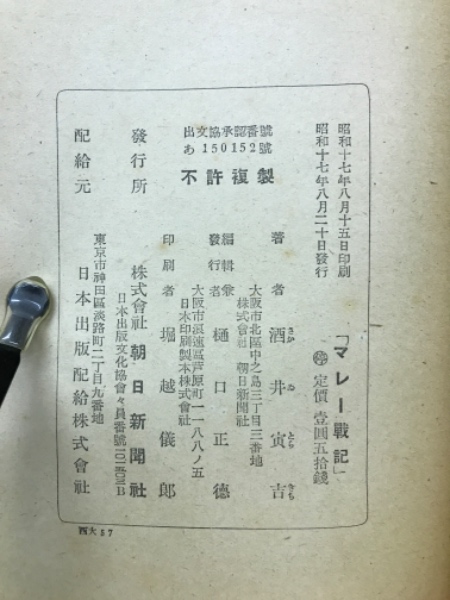 昭和十七年八月十五日印刷
昭和十七年八月二十日發行
「マレー戰記」
定價 壹圓五拾錢
出文協承認番號
あ150152號
不許複製
著者 酒井寅吉
さか ゐ とら きち
大阪市北區中之島三丁目三番地
株式會社 朝日新聞社
編輯兼
發行者 樋口正德
大阪市浪速區芦原町一一八八ノ五
日本印刷製本株式會社
印刷者 堀越儀郎
發行所 株式會社 朝日新聞社
日本出版文化協會々員番號
配給元
東京市神田區淡路町二丁目九番地
日本出版配給株式會社
西大57